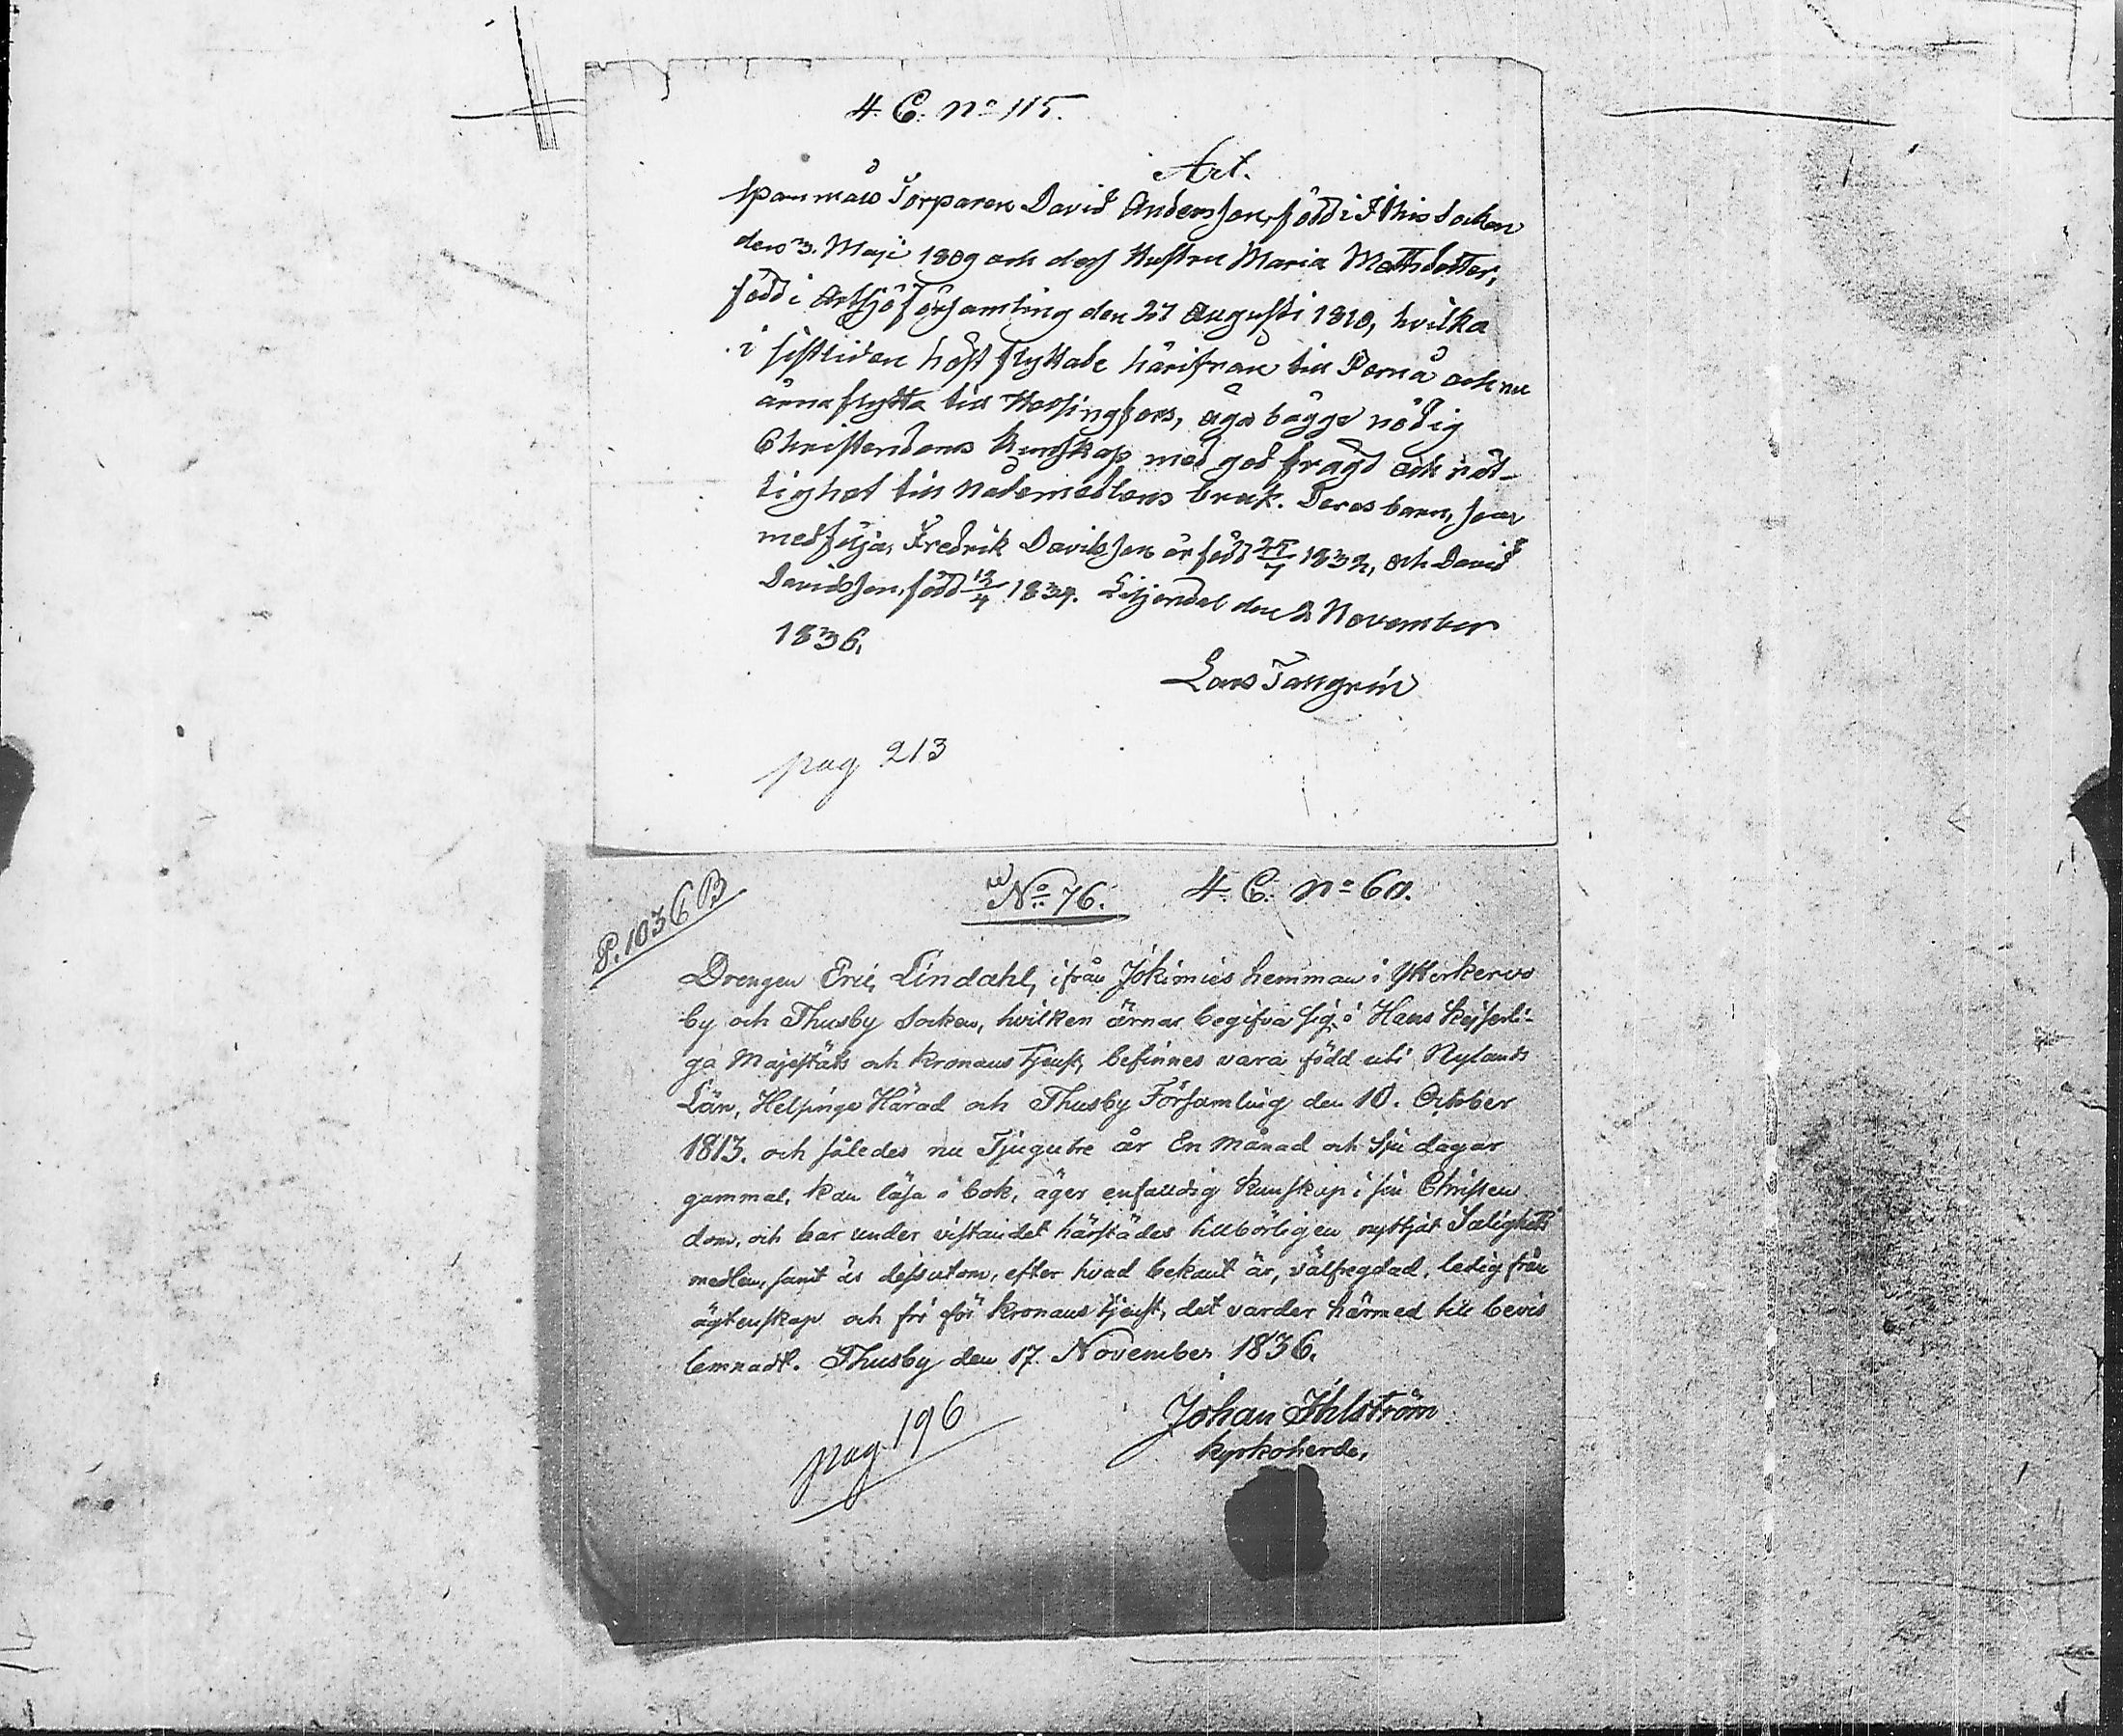 4. C. No 115.
Art.
Spanmålstorparen David Andersson, född i Itthis Socken
den 3. Maji 1809 och dess Hustru Maria Mattsdotter,
född i Artsjö Församling den 27 Augusti 1810, hvilka
i sistliden höst flyttade härifrån till Perno och nu
ärna flytta till Helsingfors, äga bägge nödig
Christendoms Kunskap med god frägd och rät-
tighet till Nådemedlens bruk. Deras barn, som
medfölja, Fredrik Davidsson är född 25/7 1832, och David
Davidsson, född 12/4 1834. Liljendal den 2 November
1836.
Lars Tallgrén
pag 213
P. 1036 B
No 76. 4. C. no 60.
Drengen Eric Lindahl, ifrån Jokimies hemman i Ytterkervo
by och Thusby Socken, hvilken ärnar begifva sig i Hans Kejserli-
ga Majestäts och Kronans tjenst, befinnes vara född uti Nylands
Län, Helsinge Härad och Thusby Församling den 10. October
1813. och således nu Tjugutre år En månad och Sju dagar
gammal, kan läsa i bok, äger enfalldig kunskap i sin Christen
dom, och har under vistandet härstädes tillbörligen nyttjat Salighets
medlen, samt är dessutom, efter hvad bekant är, välfregdad, ledig från
ägtenskap och fri för Kronans tjenst, det varder härmed till bevis
lemnadt. Thusby den 17. November 1836.
Johan Ihlström
Kyrkoherde,
pag 196